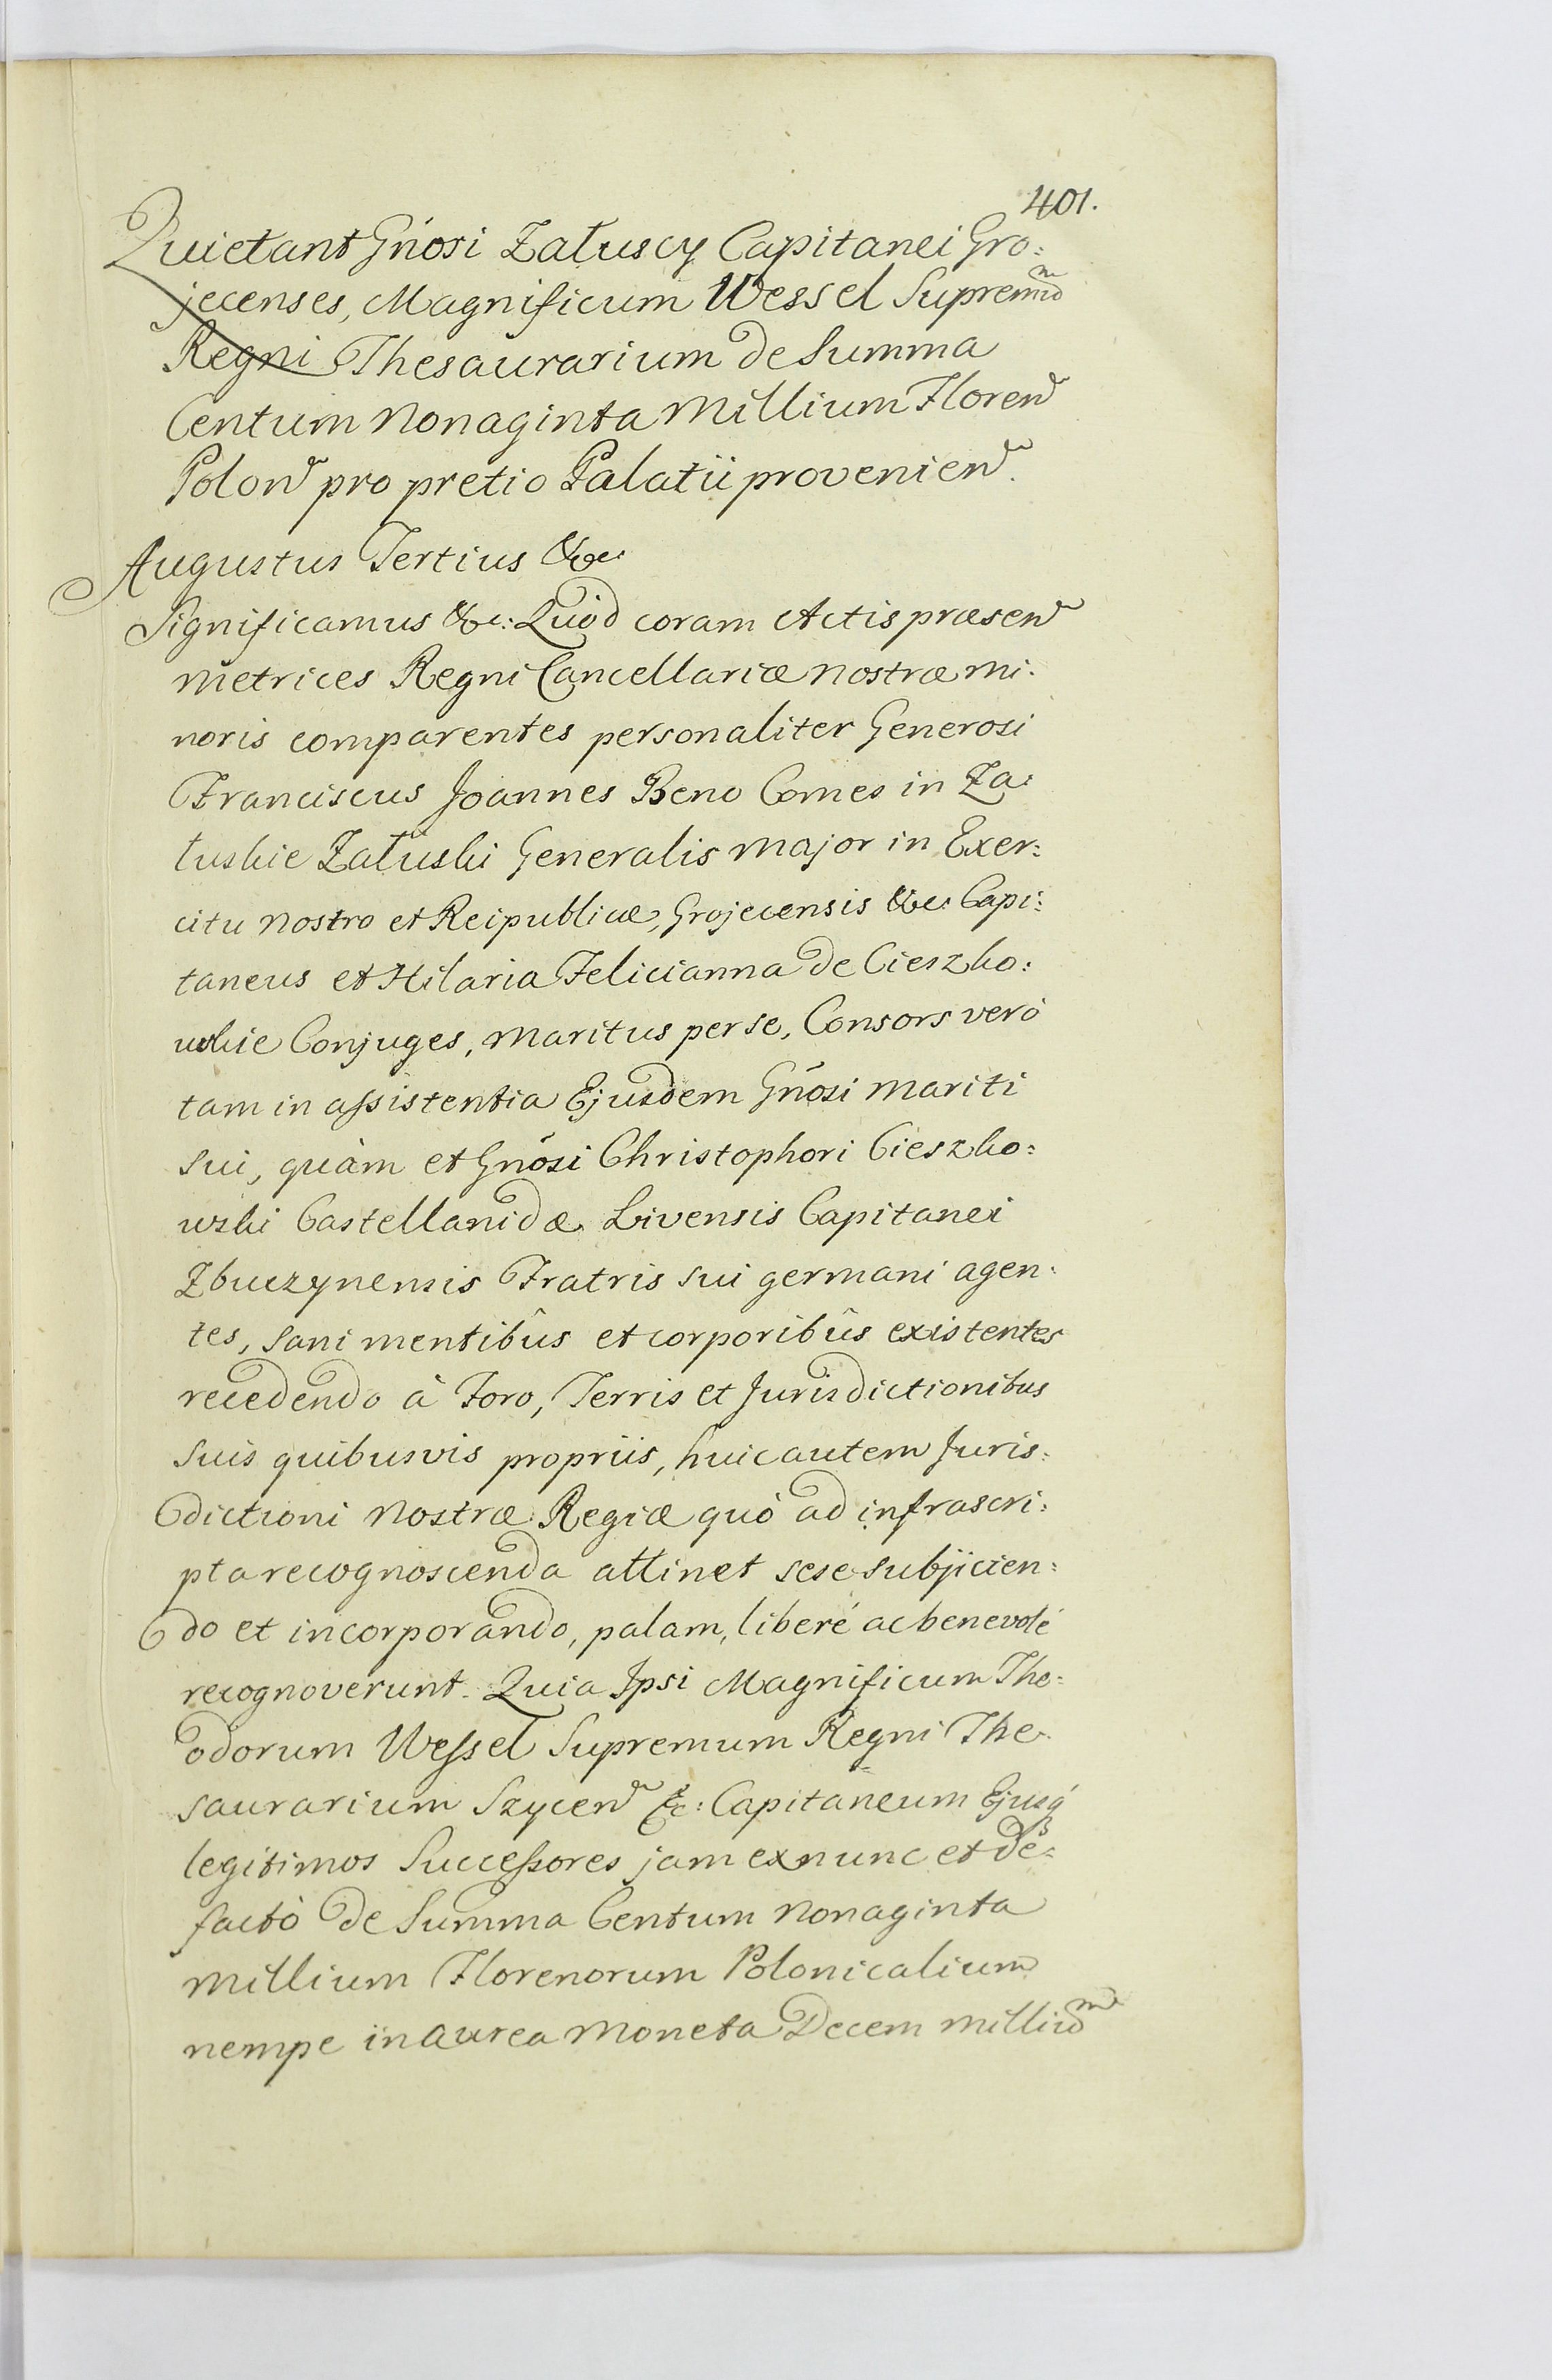 401.
Quietant Gnosi Załuscy Capitanei Gro:
jecenses, Magnificum Wessel Supremū
Regni Thesaurarium de Summa
Centum Nonaginta Millium Floren
Polon pro pretio Palatii provenien.
Augustus Tertius &c.
Significamus &c: Quòd coram Actis præsen
Metrices Regni Cancellariæ nostræ Mi:
noris comparentes personaliter Generosi
Franciscus Joannes Beno Comes in Za:
łuskie Załuski Generalis Major in Exer:
citu Nostro et Reipublicæ, Grojecensis &c: Capi:
taneus et Hilaria Felicianna de Cieszko:
wskie Conjuges, Maritus per se, Consors verò
tam in assistentia Ejusdem Gnosi Mariti
sui, quàm et Gnosi Christophori Cieszko:
wski Castellanidæ Livensis Capitanei
Zbuczynensis Fratris sui germani agen:
tes, sani mentibûs et corporibûs existentes
recedendo à Foro, Terris et Jurisdictionibus
suis quibusvis propriis, huic autem Juris:
dictioni Nostræ Regiæ quò ad infrascri:
pta recognoscenda attinet sese subjicien:
do et incorporando, palam, liberé ac benevolé
recognoverunt. Quia Ipsi Magnificum The:
odorum Wessel Supremum Regni The:
saurarium Szycen &c: Capitaneum Ejusq́
legitimos Successores jam ex nunc et de:
factò de Summa Centum Nonaginta
Millium Florenorum Polonicalium
nempe in aurea Moneta Decem Milliū